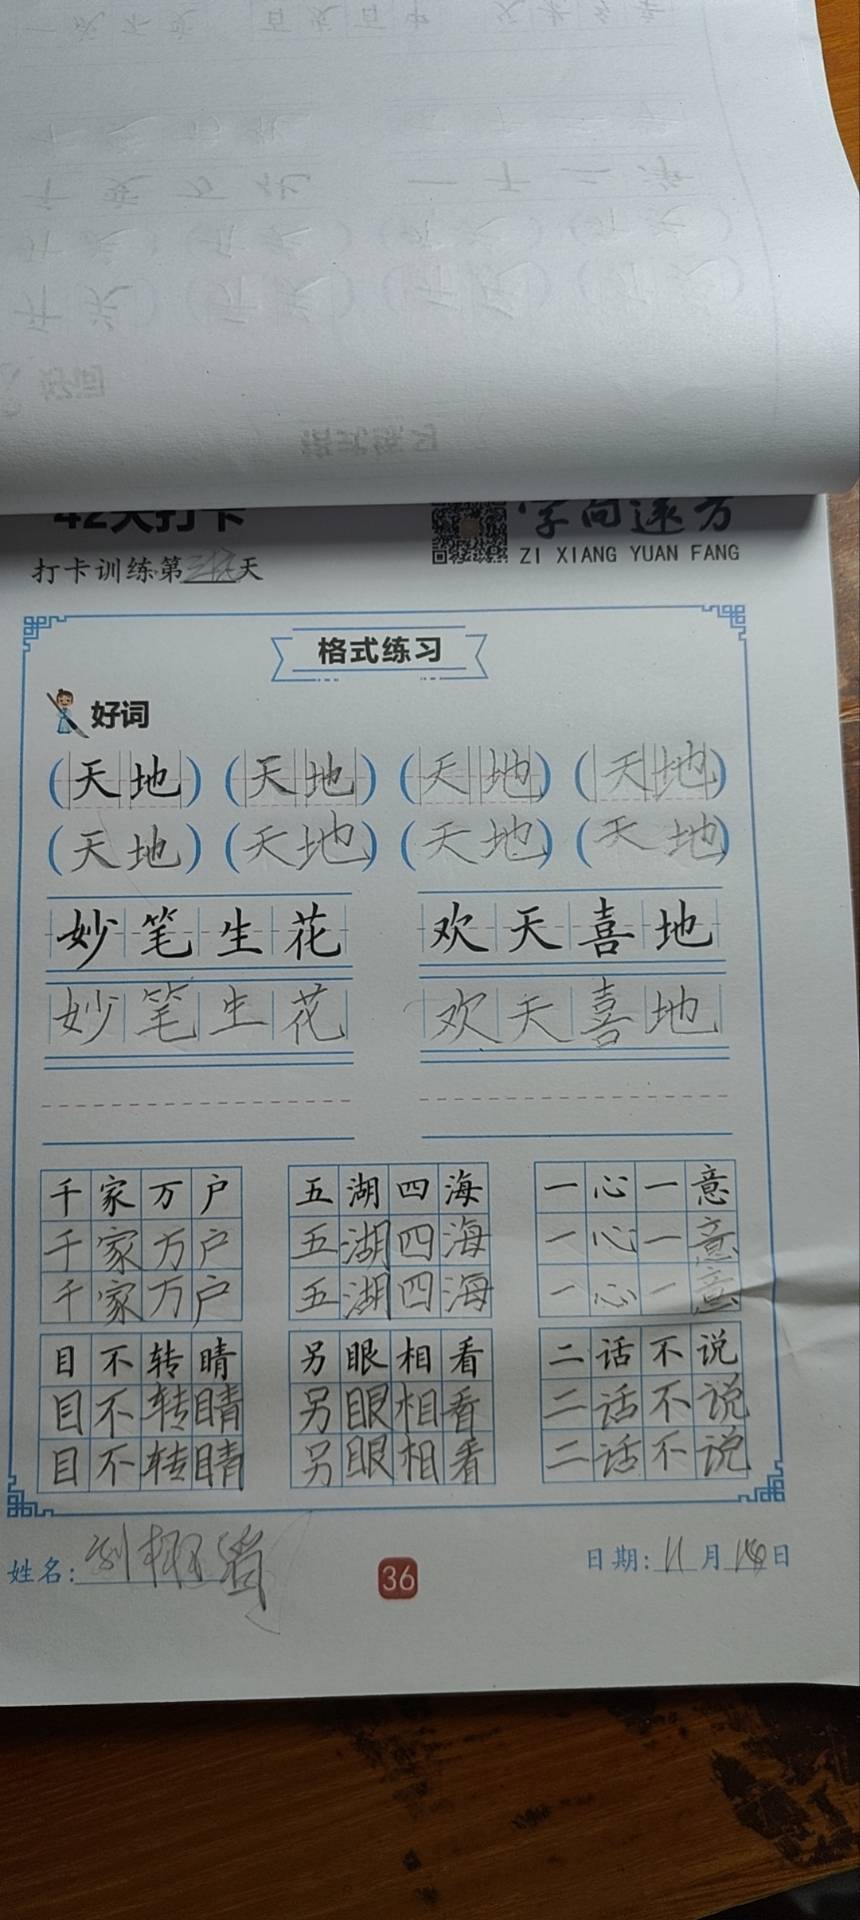 42天打卡
字向远方
打卡训练第 天
ZI XIANG YUAN FANG
格式练习
好词
(天地)(天地)(天地)(天地)
(天地)(天地)(天地)(天地)
妙笔生花 欢天喜地
妙笔生花 欢天喜地
千家万户 五湖四海 一心一意
千家万户 五湖四海 一心一意
千家万户 五湖四海 一心一意
目不转睛 另眼相看 二话不说
目不转睛 另眼相看 二话不说
目不转睛 另眼相看 二话不说
姓名: 36 日期:11月 日